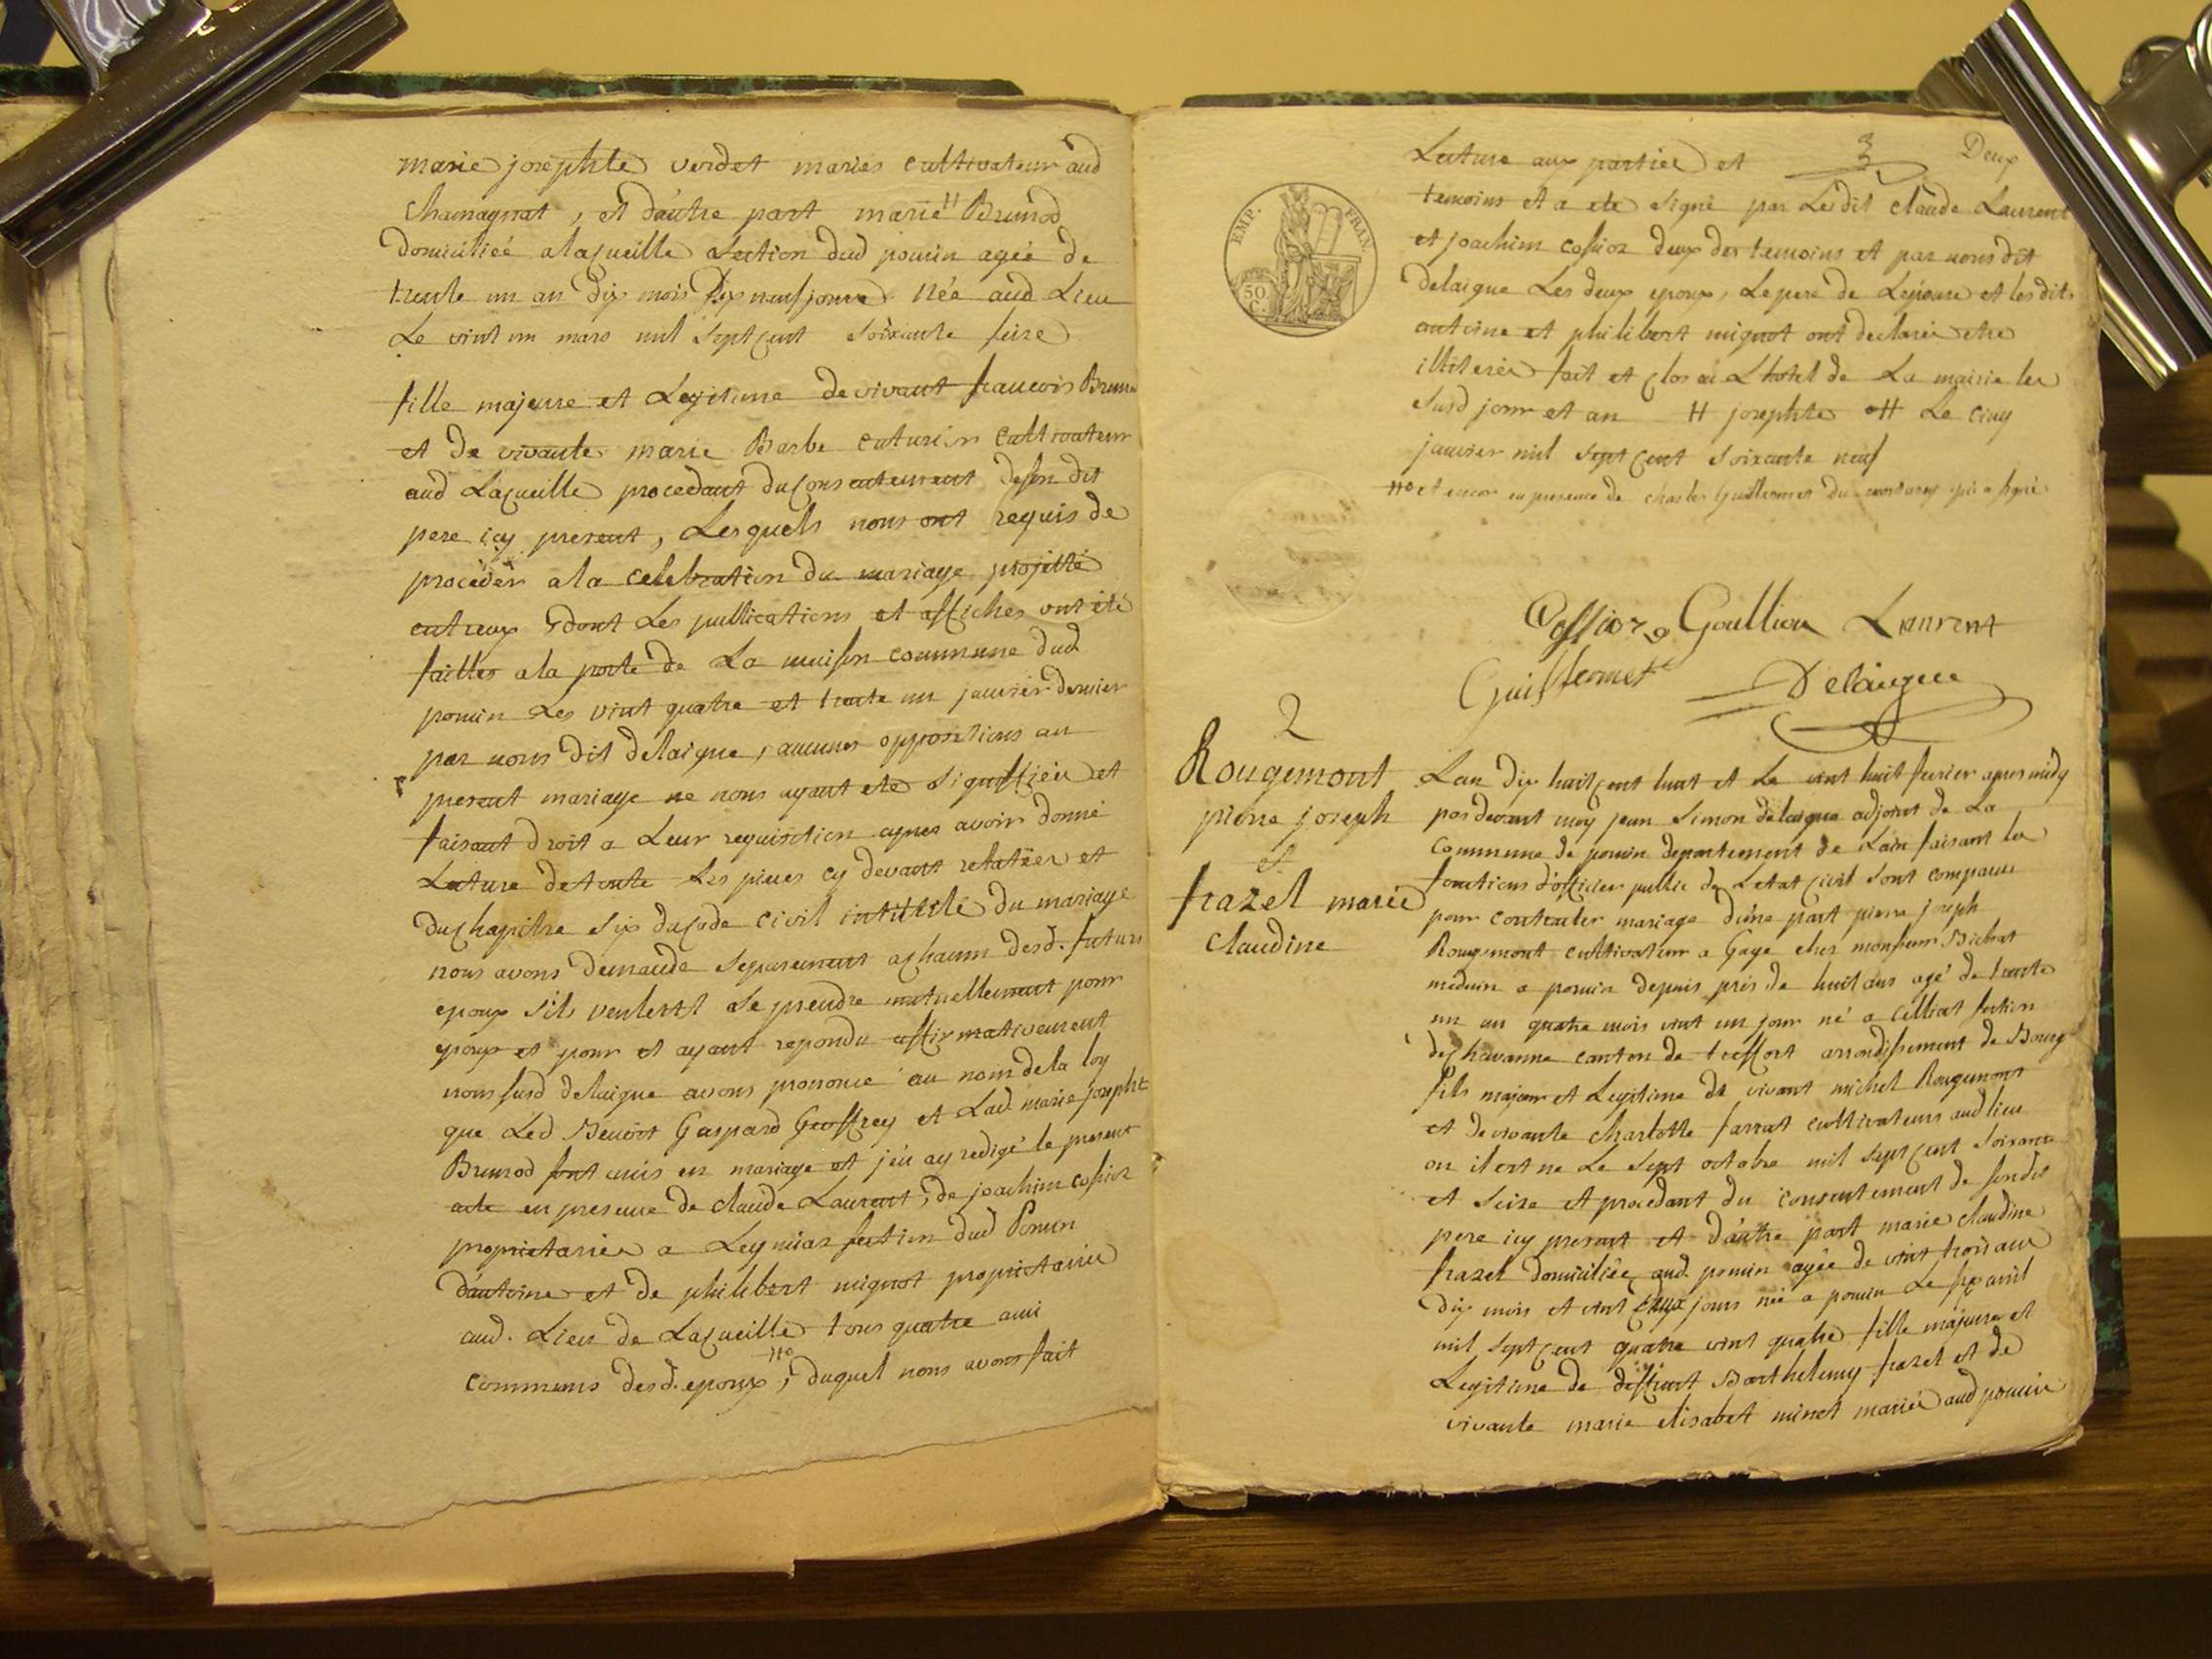 marie josephte verdet mariés cultivateur aud
chamagnat, et d'autre part marie H Brunod
domiciliée alacueille section dud poncin agée de
trente un an dix mois dix neuf jours Née aud Lieu
Le vint un mars mil sept cent soixante seize
fille majeure et Legitime de vivant francois Brunod
et de vivante marie Barbe cuturier cultivateur
aud Lacueille procedant du consentement deson dit
pere icy present, Lesquels nous ont requis de
procéder ala celebration du mariage projetté
entreux & dont Les publications et affiches ont été
faittes ala porte de La maison commune dud
poncin Les vint quatre et trente un janvier dernier
par nous dit delaigue, aucunes oppositions au
present mariage ne nous ayant eté signiffiéu et
faisant droit a Leur requisition apres avoir donné
Lecture detoute Les pieces cy devant relatées et
duchapitre six ducode civil intitulé du mariage
nous avons demandé separement achaun desd. futurs
epoux sils veulent se prendre mutuellement pour
epoux et pour et ayant repondu affirmativement
nous susd delaigue avons prononcé au nom dela loy
que Led Benoit Gaspard Geoffrey et Lad marie josepht
Brunod sont unis en mariage et j'eu ay redigé le present
acte en presence de claude Laurent, de joachim cossior
proprietaries a Leymiar section dud Poncin
d'antoine et de philibert mignot proprietaire
aud. Lieu de Lacueille tous quatre ami
communs desd. epoux, H° duquel nous avons fait
3
Deux
Lecture aux parties et
temoins et a eté signé par Ledit claude Laurent
et joachim cossior deux des temoins et par nous dit
delaigue Les deux epoux, Lepere de Lepouse et les dits
antoine et philibert mignot ont declarés etre
illiterés fait et clos ai L'hotel de La mairie les
susd jour et an H josephte H Le cinq
janvier mil sept cent soixante neuf
H° et encor en presence de charles Guillermet du qui a signé
EMP. FRAN.
50 C.
Cossior Goullion Laurent
Guillermet Delaigue
2
Rougemont
pierre joseph
et
frazel marie
claudine
Lan dix huit cent huit et Le vint huit fevrier apres midy
pardevant moy jean simon delaigue adjoint de La
Commune de poncin departement de Lain faisant les
fonctions d'officier public de Letat civil sont comparus
pour contracter mariage d'une part pierre joseph
Rougemont cultivateur a Gage ches monsieur Bichat
medecin a poncin depuis près de huit ans agé de trente
un an quatre mois vint un jour né a Cilliat section
dechavanne canton de treffort arrondissement de Bourg
fils majeur et Legitime de vivant michel Rougemont
et devivante charlotte farrat cultivateurs aud lieu
ou il est ne Le sept octobre mil sept cent soixante
et seize et procedant du consentement de sondit
pere icy present et d'autre part marie claudine
frazel domiciliée aud. poncin agée de vint trois ans
dix mois et vint deux jours née a poncin Le six avril
mil sept cent quatre vint quatre fille majeure et
Legitime de deffunt Barthelemy frazel et de
vivante marie elisabet minet mariés aud poncin